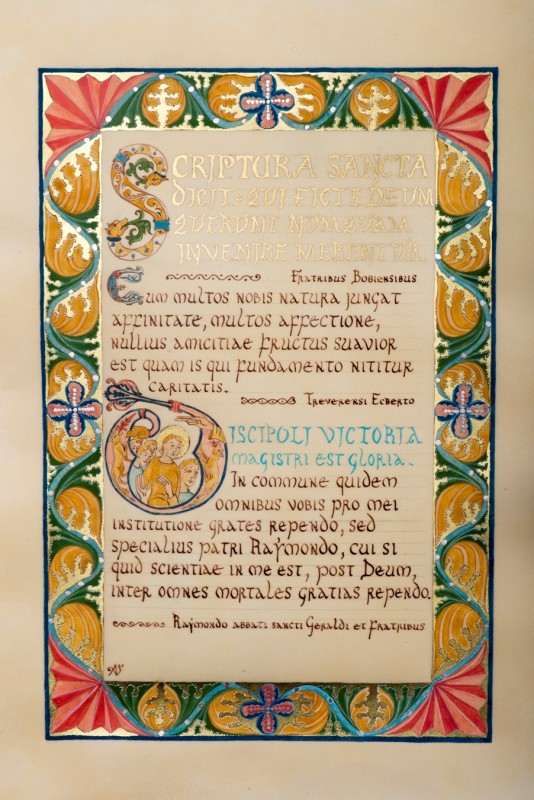 SCRIPTURA SANCTA
DICIT: QUI FICTE DEUM
QUERUNT NUMQUAM
INVENIRE MERENTUR.
FRATRIBUS BOBIENSIBUS
CUM MULTOS NOBIS NATURA JUNGAT
AFFINITATE, MULTOS AFFECTIONE,
NULLIUS AMICITIAE FRUCTUS SUAVIOR
EST QUAM IS QUI FUNDAMENTO NITITUR
CARITATIS.
TREVERENSI ECBERTO
DISCIPOLI VICTORIA
MAGISTRI EST GLORIA.
IN COMMUNE QUIDEM
OMNIBUS VOBIS PRO MEI
INSTITUTIONE GRATES REPENDO, SED
SPECIALIUS PATRI RAYMONDO, CUI SI
QUID SCIENTIAE IN ME EST, POST DEUM,
INTER OMNES MORTALES GRATIAS REPENDO.
RAYMONDO ABBATI SANCTI GERALDI ET FRATRIBUS